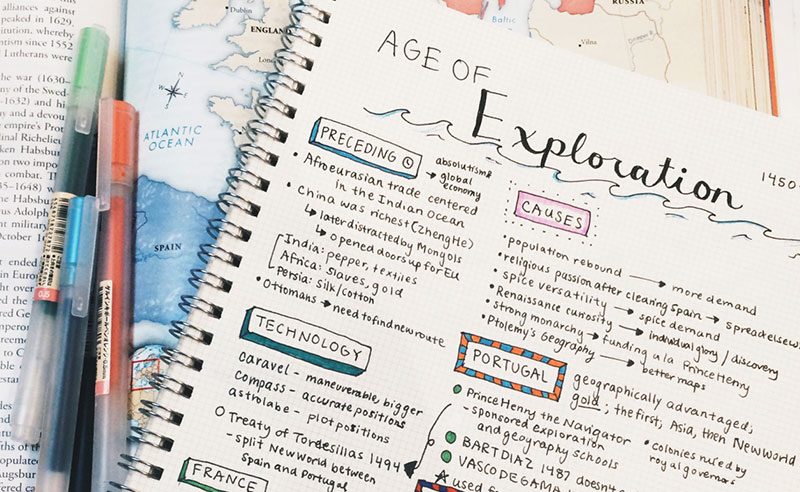 alliances against
peaked in 1629,
titution, whereby
tism since 1552
Lutherans were
the war (1630–
ny of the Swed-
–1632) and his
y and a devout
empire's Protes
inal Richelieu
ken Habsbur
on two impo
combat. T
45–1648) w
the Habsbu
us Adolph
nt military
October 1
Dublin
ENGLAND
London
ATLANTIC
OCEAN
SPAIN
Baltic
RUSSIA
Vilna
AGE OF
Exploration
1450
PRECEDING
absolutism &
→ global
economy
• Afroeurasian trade centered
in the Indian Ocean
• China was richest (Zheng He)
↳ later distracted by Mongols
↳ opened doors up for EU
India: pepper, textiles
Africa: slaves, gold
Persia: silk/cotton
• Ottomans → need to find new route
CAUSES
• population rebound → more demand
• religious passion after clearing Spain → spread elsew
• spice versatility → spice demand
• Renaissance curiosity → individual glory / discovery
• strong monarchy → funding a la Prince Henry
• Ptolemy's Geography → better maps
TECHNOLOGY
caravel - maneuverable, bigger
compass - accurate positions
astrolabe - plot positions
○ Treaty of Tordesillas 1494
- split New World between
Spain and Portugal
FRANCE
PORTUGAL
geographically advantaged;
gold; the first; Asia, then New World
Prince Henry the Navigator
- sponsored exploration
and geography schools
• colonies ruled by
royal governors
BART DIAZ 1487 doesn't
VASCO DE GAMA
used f